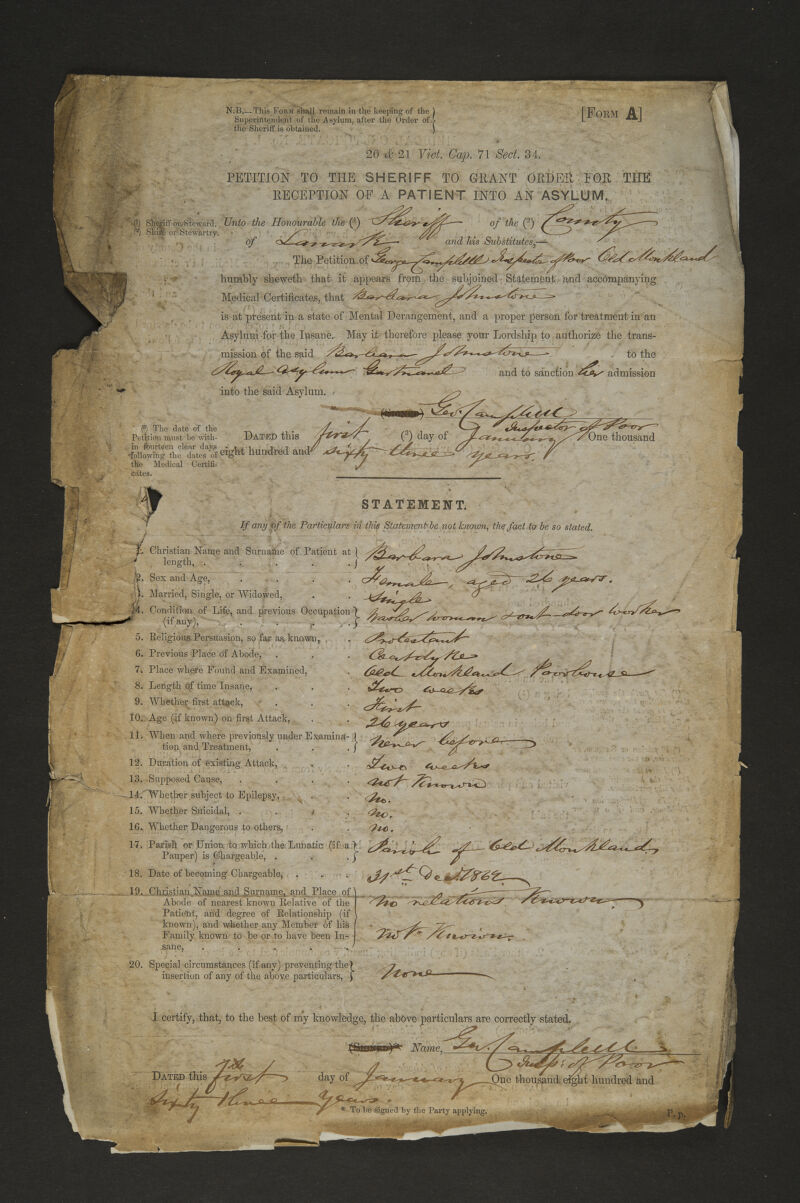 N.B.—This Form shall remain in the keeping of the
Superintendent of the Asylum, after the Order of
the Sheriff is obtained.
[Form A]
20 & 21 Vict. Cap. 71 Sect. 34.
PETITION TO THE SHERIFF TO GRANT ORDER FOR THE
RECEPTION OF A PATIENT INTO AN ASYLUM.
(1) Sheriff or Steward.
(2) Shire or Stewartry.
Unto the Honourable the (1) Sheriff of the (2) County
of Lanark and his Substitutes,—
The Petition of George Campbell Inspector of Poor Old Monkland
humbly sheweth that it appears from the subjoined Statement and accompanying
Medical Certificates, that Barbara Johnstone
is at present in a state of Mental Derangement, and a proper person for treatment in an
Asylum for the Insane. May it therefore please your Lordship to authorize the trans-
mission of the said Barbara Johnstone to the
Royal Asylum Gartnavel and to sanction her admission
into the said Asylum.
(Signed) Geo. Campbell
Inspector of Poor
(3) The date of the
Petition must be with-
in fourteen clear days
following the dates of
the Medical Certifi-
cates.
Dated this first (3) day of January One thousand
eight hundred and sixty three years.
STATEMENT.
If any of the Particulars in this Statement be not known, the fact to be so stated.
1. Christian Name and Surname of Patient at length, Barbara Johnstone
2. Sex and Age, Female, aged 26 years.
3. Married, Single, or Widowed, Single
4. Condition of Life, and previous Occupation (if any), Washer woman & out-door worker
5. Religious Persuasion, so far as known, Protestant
6. Previous Place of Abode, Coatdyke
7. Place where Found and Examined, Old Monkland Poorhouse
8. Length of time Insane, Two weeks
9. Whether first attack, First
10. Age (if known) on first Attack, 26 years
11. When and where previously under Examina-
tion and Treatment, never before
12. Duration of existing Attack, Two weeks
13. Supposed Cause, not Known
14. Whether subject to Epilepsy, no.
15. Whether Suicidal, no.
16. Whether Dangerous to others, no.
17. Parish or Union to which the Lunatic (if a
Pauper) is Chargeable, Parish of Old Monkland
18. Date of becoming Chargeable, 31st Dec. 1862
19. Christian Name and Surname, and Place of
Abode of nearest known Relative of the no relations Known.
Patient, and degree of Relationship (if
known), and whether any Member of his
Family known to be or to have been In- not Known.
sane,
20. Special circumstances (if any) preventing the
insertion of any of the above particulars, None
I certify, that, to the best of my knowledge, the above particulars are correctly stated.
(Signed)* Name, Geo. Campbell
Insp: of Poor
Dated this first day of January One thousand eight hundred and
sixty three years.
* To be signed by the Party applying.
P. p.